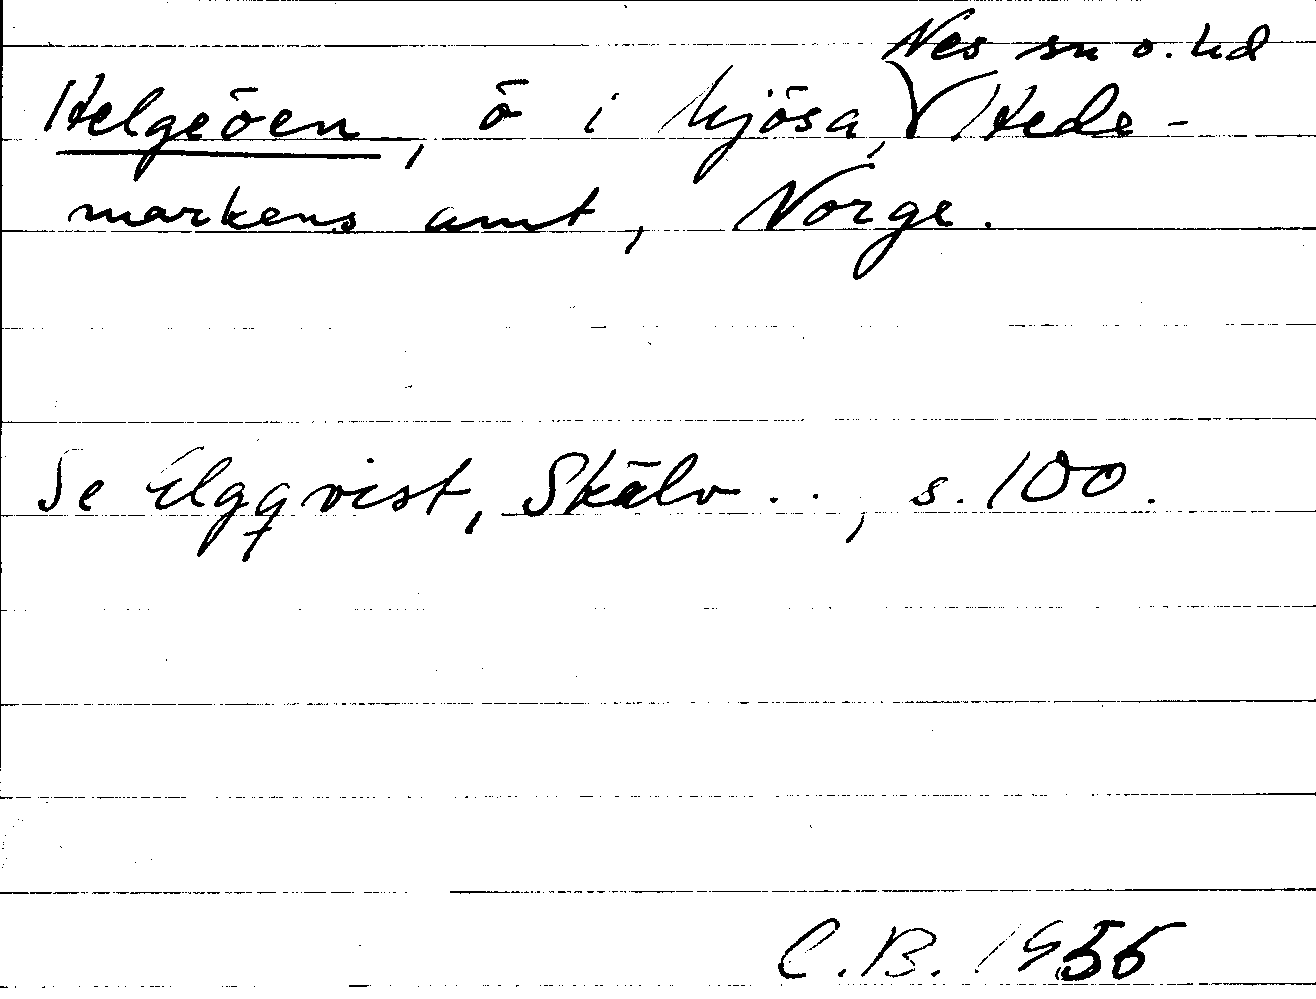 Nes sn o. hd
Helgeöen, ö i Mjösa, Hede-
markens amt, Norge.
Se Elgqvist, Skälv . . , s. 100.
C.B. 1956